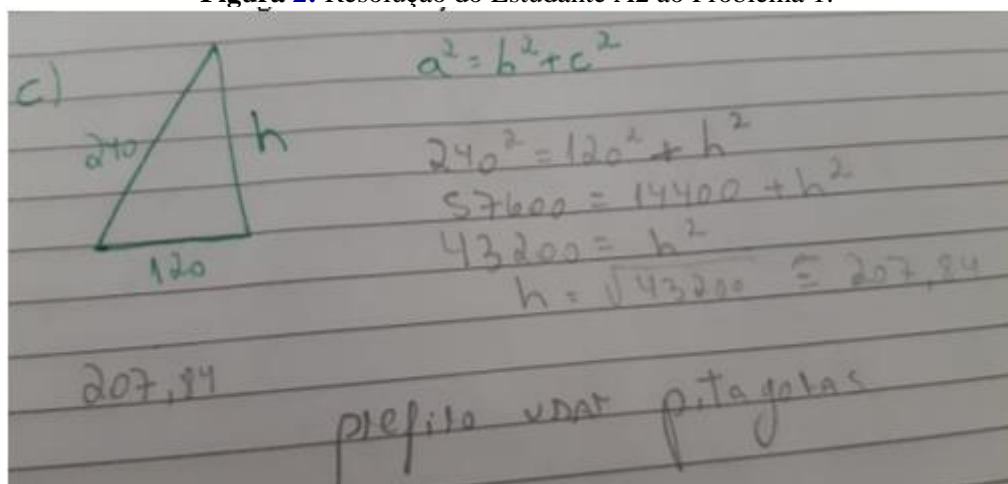 Figura 2: Resolução do Estudante A2 ao Problema 1.
c)
240
h
120
a² = b² + c²
240² = 120² + h²
57600 = 14400 + h²
43200 = h²
h = √43200 ≅ 207,84
207,84
prefiro usar pitagoras